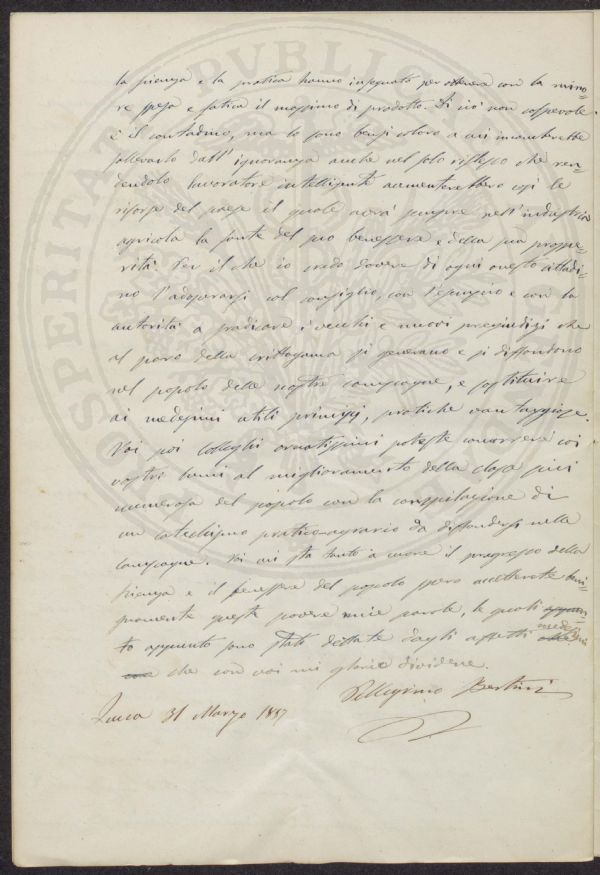 la scienza e la pratica hanno insegnato per ottenere con la mino=
re spesa e fatica il massimo di prodotto. Di ciò non colpevole
è il contadino, ma lo sono bensì coloro a cui incomberebbe
sollevarlo dall'ignoranza anche nel solo riflesso che ren=
dendolo lavoratore intelligente aumenterebbero così le
risorse del paese il quale avrà sempre nell'industria
agricola la fonte del suo benessere e della sua prospe=
rità. Per il che io credo dovere di ogni onesto cittadi=
no l'adoperarsi col consiglio, con l'esempio e con la
autorità a sradicare i vecchi e nuovi pregiudizi che
al paro della crittogama si generano e si diffondono
nel popolo delle nostre campagne, e sostituire
ai medesimi utili principj, pratiche vantaggiose.
Voi poi colleghi ornatissimi potete concorrere coi
vostri lumi al miglioramento della classe più
numerosa del popolo con la compilazione di
un catechismo pratico-agrario da diffondersi nelle
campagne. Voi cui sta tanto a cuore il progresso della
scienza e il benessere del popolo spero accetterete beni=
gnamente queste povere mie parole, le quali appun=
to appunto sono state dettate dagli affetti medesimi
che con voi mi glorio dividere.
Pellegrino Bertini
Lucca 31 Marzo 1857
PROSPERITATI PUBLICAE